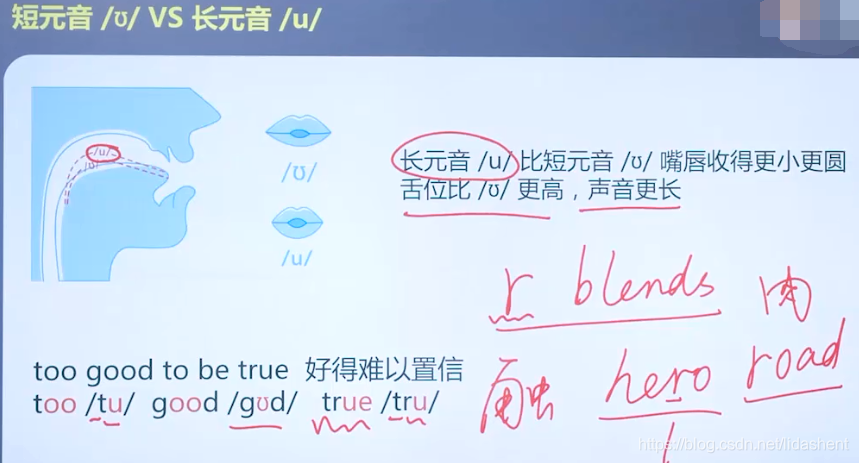 短元音 /ʊ/ VS 长元音 /u/
/u/
/ʊ/
/ʊ/
/u/
长元音 /u/ 比短元音 /ʊ/ 嘴唇收得更小更圆
舌位比 /ʊ/ 更高，声音更长
r blends 肉
融 hero road
too good to be true 好得难以置信
too /tu/ good /gʊd/ true /tru/
https://blog.csdn.net/lidashent